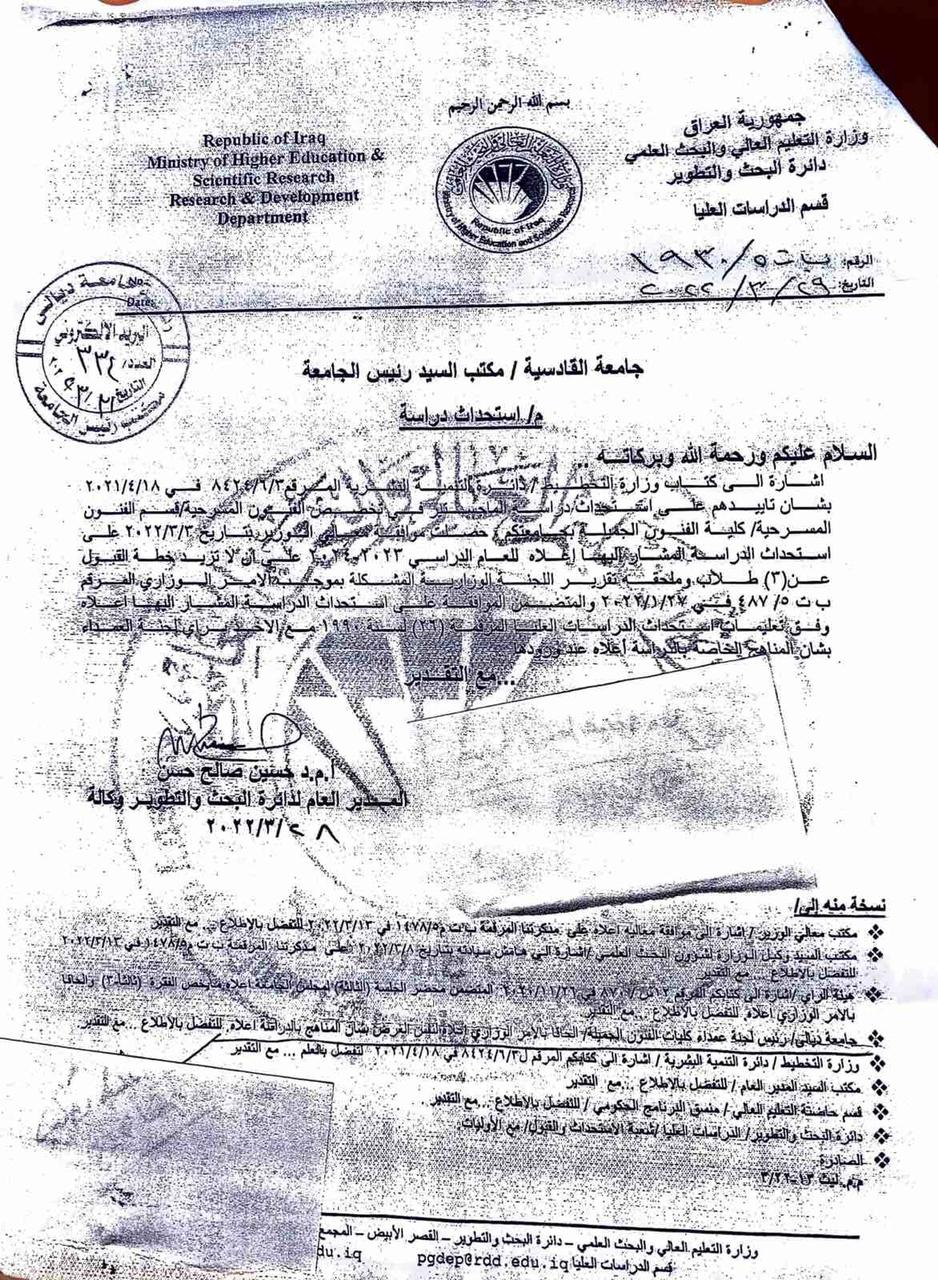 بسم الله الرحمن الرحيم
جمهورية العراق
وزارة التعليم العالي والبحث العلمي
دائرة البحث والتطوير
قسم الدراسات العليا
Republic of Iraq
Ministry of Higher Education &
Scientific Research
Research & Development
Department
Republic of Iraq
Ministry of Higher Education and Scientific Research
الرقم: ب ت ٥/ ١٩٣٠
التاريخ: ٢٩/ ٣/ ٢٠٢٢
Date:
جامعة ديالى
البريد الالكتروني
العدد/ ٣٣٤
التاريخ
مكتب رئيس الجامعة
جامعة القادسية / مكتب السيد رئيس الجامعة
م/ استحداث دراسة
السلام عليكم ورحمة الله وبركاته ..
اشارة الى كتاب وزارة التخطيط/ دائرة التنمية البشرية المرقم ٨٤٢٤/٦/٣ في ٢٠٢١/٤/١٨
بشان تاييدهم على استحداث دراسة الماجستير في تخصص الفنون المسرحية/قسم الفنون
المسرحية/ كلية الفنون الجميلة بجامعتكم، حصلت موافقة معالي الوزير بتاريخ ٢٠٢٢/٣/٣ على
استحداث الدراسة المشار اليها إعلاه للعام الدراسي ٢٠٢٣-٢٠٢٤ على ان لا تزيد خطة القبول
عن(٣) طلاب وملحقة تقرير اللجنة الوزارية المشكلة بموجب الأمر الوزاري المرقم
ب ت ٥/ ٤٨٧ في ٢٠٢٢/١/٢٧ والمتضمن الموافقة على استحداث الدراسة المشار اليها اعلاه
وفق تعليمات استحداث الدراسات العليا المرقمة (٢٦) لسنة ١٩٩٠ مع الاخذ براي لجنة العمداء
بشان المناهج الخاصة بالدراسة أعلاه عند ورودها
...مع التقدير
أ.م.د حسين صالح حسن
المدير العام لدائرة البحث والتطوير وكالة
٢٠٢٢/٣/٢٨
نسخة منه إلى/
❖ مكتب معالي الوزير / اشارة الى موافقة معاليه اعلاه على مذكرتنا المرقمة ب ت ١٤٧٨/٥ في ٢٠٢٢/٣/١٣ للتفضل بالإطلاع ... مع التقدير
❖ مكتب السيد وكيل الوزارة لشؤون البحث العلمي /اشارة الى هامش سيادته بتاريخ ٢٠٢٢/٣/٨ على مذكرتنا المرقمة ب ت ١٤٧٨/٥ في ٢٠٢٢/٣/١٣
للتفضل بالاطلاع ... مع التقدير
❖ هيئة الراي /اشارة الى كتابكم المرقم المتضمن محضر الجلسة (الثالثة) لمجلس الجامعة اعلاه والحاقا
بالامر الوزاري اعلاه للتفضل بالاطلاع ... مع التقدير
❖ جامعة ديالى/ رئيس لجنة عمداء كليات الفنون الجميلة/ الحاقا بالامر الوزاري إعلاه لنفس الغرض بشان المناهج بالدراسة اعلاه للتفضل بالاطلاع ...مع التقدير
❖ وزارة التخطيط / دائرة التنمية البشرية / اشارة الى كتابكم المرقم ٨٤٢٤/٦/٣ في ٢٠٢١/٤/١٨ لتفضل بالعلم ... مع التقدير
❖ مكتب السيد المدير العام / للتفضل بالإطلاع ...مع التقدير
❖ قسم حاضنة التعليم العالي / منسق البرنامج الحكومي / للتفضل بالاطلاع ...مع التقدير
❖ دائرة البحث والتطوير/ الدراسات العليا /شعبة الاستحداث والقبول/ مع الأوليات
❖ الصادرة
وزارة التعليم العالي والبحث العلمي – دائرة البحث والتطوير – القصر الأبيض – المجمع
قسم الدراسات العليا pgdep@rdd.edu.iq du.iq